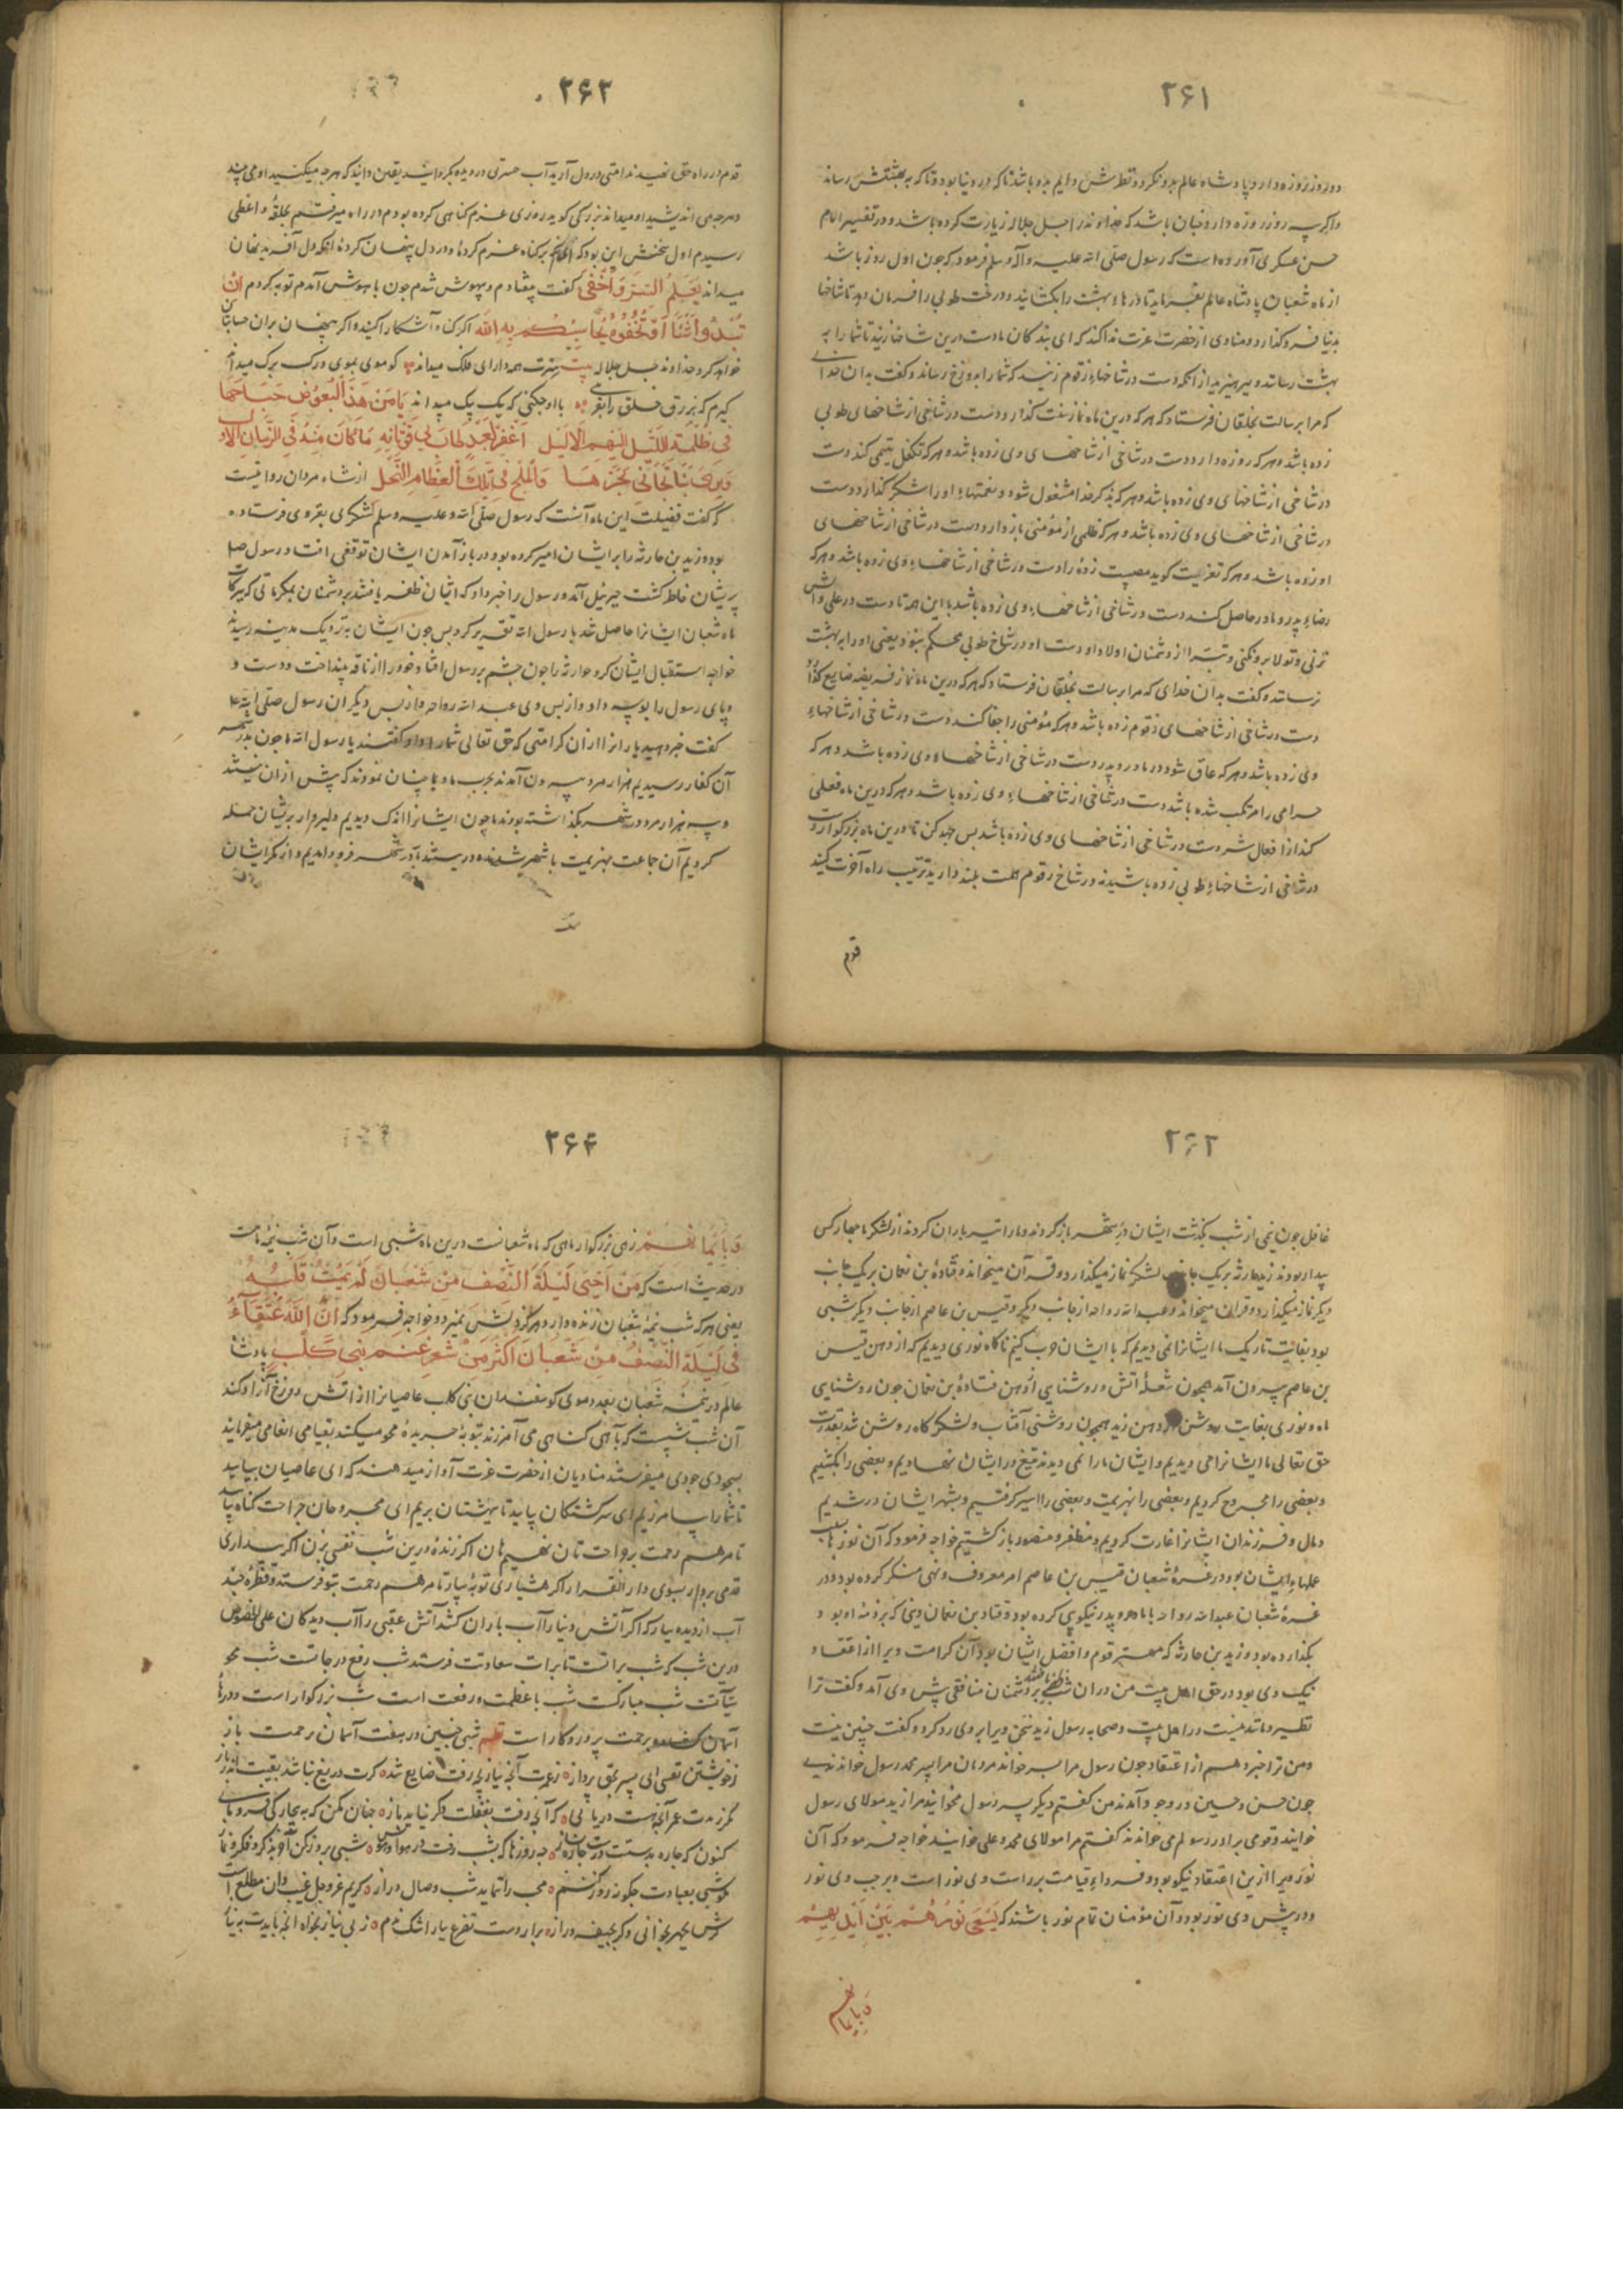 ۲۶۱
دو روز روزه دارد پادشاه عالم بدو نگرد و نظرش دایم بدو باشد تا که در دنیا بود و تا که به بهشتش رساند
و اگر سه روز روزه دارد چنان باشد که خداوند را جل جلاله زیارت کرده باشد و در تفسیر امام
حسن عسکری آورده است که رسول صلی الله علیه و آله و سلم فرمود که چون اول روز باشد
از ماه شعبان پادشاه عالم بفرماید تا درهاء بهشت را بگشایند و درخت طوبی را فرمان دهد تا شاخها
بدنیا فرو گذارد و منادی از حضرت عزت ندا کند که ای بندگان ما دست درین شاخها زنید تا شما را به
بهشت رساند و بپرهیزید از آنکه دست در شاخهاء زقوم زنید که شما را بدوزخ رساند و گفت بدان خدای
که مرا برسالت بخلقان فرستاد که هر که درین ماه نماز سنت گذارد دست در شاخی از شاخهای طوبی
زده باشد و هر که روزه دارد دست در شاخی از شاخهای وی زده باشد و هر که تکفل یتیمی کند دست
در شاخی از شاخهای وی زده باشد و هر که بذکر خدا مشغول شود و نعمتهاء او را شکر گذارد دست
در شاخی از شاخهای وی زده باشد و هر که ظلمی از مؤمنی باز دارد دست در شاخی از شاخهای
او زده باشد و هر که تعزیت گوید مصیبت زده را دست در شاخی از شاخهاء وی زده باشد و هر که
رضاء پدر و مادر حاصل کند دست در شاخی از شاخهاء وی زده باشد با این همه تا دست در علی و
نزنی و تولا بدو نکنی و تبرا از دشمنان اولاد او دست او در شاخ طوبی محکم نبود یعنی او را به بهشت
نرساند و گفت بدان خدای که مرا برسالت بخلقان فرستاد که هر که درین ماه نماز فریضه ضایع
دست در شاخی از شاخهای زقوم زده باشد و هر که مؤمنی را جفا کند دست در شاخی از شاخهاء
وی زده باشد و هر که عاق شود در مادر و پدر دست در شاخی از شاخهاء وی زده باشد و هر که
حرامی را مرتکب شده باشد دست در شاخی از شاخهاء وی زده باشد و هر که درین ماه فعلی
کند از افعال شر دست در شاخی از شاخهای وی زده باشد پس جهد کن تا درین ماه بزرگوار دست
در شاخی از شاخهاء طوبی زده باشید نه در شاخ زقوم همت بلند دارید ترتیب راه آخرت کنید
قدم
۲۶۲
قدم در راه حق نهید ندامتی در دل آرید آب حسرتی در دیده بگردانید یقین دانید که هرچه میکنید او می بیند
و هرچه می اندیشید او میداند بزرگی گوید روزی عزم گناهی کرده بودم در راه میرفتم بحلقه واعظی
رسیدم اول سخنش این بود که بر گناه عزم کردهٔ و در دل پنهان کردهٔ آنکه دل آفریده نهان
میداند یَعْلَمُ السِّرَّ وَاَخْفی گفت بیفتادم و بیهوش شدم چون با هوش آمدم توبه کردم اِنْ
تُبْدُوا شَیْئًا اَوْ تُخْفُوهُ یُحَاسِبْکُمْ بِهِ اللّه اگر گناه آشکارا کنید و اگر پنهان بران حساب
خواهد کرد خداوند جل جلاله بیت سرت همه دارای فلک میداند کو موی بموی و رگ برگ میداند
گیرم که بزرق خلق را بفریبی با او چکنی که یک بیک میداند یَا مَنْ هَذَا الْبَعُوضِ جَنَاحَهَا
فی ظُلْمَةِ اللَّیْلِ الْبَهِیمِ الْاَلْیَلِ اِغْفِرْ لِعَبْدٍ تَابَ مِنْ فَرَطَاتِهِ مَا کَانَ مِنْهُ فِی الزَّمَانِ الْاَوَّل
وَیَرَی نِیَاطَ فِی نَحْرِهَا وَالْمُخَّ فِی تِلْکَ الْعِظَامِ النُّحَّل از شاه مردان روایتست
که گفت فضیلت این ماه آنست که رسول صلی الله علیه و سلم لشکری بغزوی فرستاده
بود و زید بن حارثه را بر ایشان امیر کرده بود در باز آمدن ایشان توقفی افتاد رسول
پریشان خاطر گشت جبرئیل آمد و رسول را خبر داد که ایشان ظفر یافتند بر دشمنان بمکرماتی که ببرکات
ماه شعبان ایشانرا حاصل شد یا رسول الله تقریر کرد پس چون ایشان به نزدیک مدینه رسیدند
خواجه استقبال ایشان کرد حارثه را چون چشم بر رسول افتاد خود را از ناقه بینداخت و دست و
پای رسول را بوسه داد و از پس وی عبد الله رواحه و از پس دیگران رسول صلی الله
گفت خبر دهید یارانرا از آن کرامتی که حق تعالی شما را داد گفتند یا رسول الله ما چون بدر شهر
آن کفار رسیدیم هزار مرد بیرون آمدند بحرب ما و با چنان نمودند که بیش از آن نیستند
و سه هزار مرد در شهر بگذاشته بودند ما چون ایشانرا اندک دیدیم دلیروار بریشان حمله
کردیم آن جماعت بهزیمت با شهر شدند و در بستند ما در شهر فرود آمدیم و از مکر ایشان
۲۶۳
غافل چون نیمی از شب بگذشت ایشان در شهر باز کردند و ما را تیرباران کردند از لشکر ما چهار کس
بیدار بودند زید حارثه بر یک جانب لشکر نماز میگذارد و قرآن میخواند و قتادهٔ بن نعمان بر یک جانب
دیگر نماز میگذارد و قرآن میخواند و عبد الله رواحه از جانب دیگر و قیس بن عاصم از جانب دیگر شبی
بود بغایت تاریک ما ایشانرا نمی دیدیم که با ایشان حرب کنیم ناگاه نوری دیدیم که از دهن قیس
بن عاصم بیرون آمد همچون شعلهٔ آتش و روشنایی از دهن قتادهٔ بن نعمان چون روشنایی
ماه و نوری بغایت روشن از دهن زید همچون روشنی آفتاب و لشکرگاه روشن شد بقدرت
حق تعالی ما ایشانرا می دیدیم و ایشان ما را نمی دیدند تیغ در ایشان نهادیم و بعضی را بکشتیم
و بعضی را مجروح کردیم و بعضی را بهزیمت و بعضی را اسیر گرفتیم و بشهر ایشان در شدیم
و مال و فرزندان ایشانرا غارت کردیم و مظفر و منصور باز گشتیم خواجه فرمود که آن نورها بسبب
عملهاء ایشان بود در غرهٔ شعبان قیس بن عاصم امر معروف و نهی منکر کرده بود و در
غرهٔ شعبان عبد الله رواحه با مادر و پدر نیکویی کرده بود و قتاده بن نعمان دینی که بر ذمهٔ او بود
بگذارده بود و زید بن حارثه که مهتر قوم و افضل ایشان بود آن کرامت ویرا از اعتقاد
نیک وی بود در حق اهل بیت من در آن شب دشمنان منافقی پیش وی آمد و گفت ترا
نظیر و مانند نیست در اهل بیت و صحابه رسول زید سخن ویرا بر وی رد کرد و گفت چنین نیست
و من ترا خبر دهم از اعتقاد چون رسول مرا پسر خواند مردمان مرا پسر محمد رسول خواندندی
چون حسن و حسین در وجود آمدند من گفتم دیگر پسر رسول مخوانید مرا زید مولای رسول
خوانید و قومی برادر رسولم می خواندند گفتم مرا مولای محمد و علی خوانید خواجه فرمود که آن
نور ویرا از این اعتقاد نیکو بود و فرداء قیامت بر راست وی نور است و بر چپ وی نور
و در پیش وی نور بود و آن مؤمنان تمام نور باشند که یَسْعَی نُورُهُمْ بَیْنَ اَیْدِیهِمْ
وَبِاَیْمَانِهِمْ
۲۶۴
وَبِاَیْمَانِهِمْ زهی بزرگوار ماهی که ماه شعبانست درین ماه شبی است و آن شب نیمهٔ ماهست
در حدیث است که مَنْ اَحْیَی لَیْلَةَ النِّصْفِ مِنْ شَعْبَانَ لَمْ یَمُتْ قَلْبُهُ
یعنی هر که شب نیمهٔ شعبان زنده دارد هرگز دلش نمیرد و خواجه فرمود که اِنَّ اللّهَ عُتَقَاءُ
فِی لَیْلَةِ النِّصْفِ مِنْ شَعْبَانَ اَکْثَرُ مِنْ شَعْرِ غَنَمِ بَنِی کَلْبٍ پادشاه
عالم در نیمهٔ شعبان بعدد موی گوسفندان بنی کلب عاصیانرا از آتش دوزخ آزاد کند
آن شب شبیست که بآهی گناهی می آمرزند بتوبهٔ جریدهٔ محو میکنند بقیامی انعامی میفرمایند
بسجودی جودی میفرستند منادیان از حضرت عزت آواز میدهند که ای عاصیان بیایید
تا شما را بیامرزیم ای سرگشتگان بیایید تا بهشتتان بریم ای مجروحان جراحت گناه بیایید
تا مرهم رحمت بر جراحتتان نهیم هان اگر زندهٔ درین شب نفسی بزن اگر بیداری
قدمی بردار بسوی دار القرار اگر هشیاری توبهٔ بیار تا مرهم رحمت بتو فرستد و قطرهٔ چند
آب از دیده بیار که اگر آتش دنیا را آب باران کشد آتش عقبی را آب دیدگان علی الخصوص
درین شب که شب براتست تا برات سعادتت فرستد شب رفع درجاتست شب محو
سیآتست شب مبارکست شب با عظمت و رفعت است شب بزرگوار است و درهاء
آسمان گشاده برحمت پروردگار است نظم شبی چنین در هفت آسمان رحمت باز
ز خویشتن نفسی ای پسر بحق پرداز
کنون که چاره بدستست چاره ساز